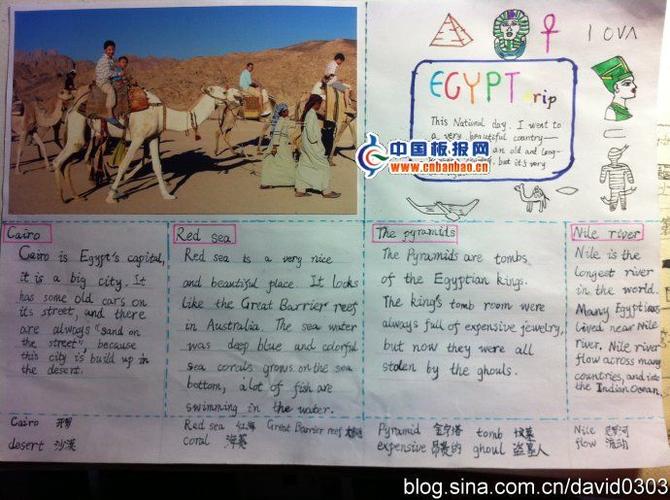 EGYPT trip
This National day. I went to
a very beautiful country—
an old and long-
but it's very
中国板报网
www.cnbanbao.cn
Cairo
Cairo is Egypt's capital,
it is a big city. It
has some old cars on
its street, and there
are always "sand on
the street", because
this city is build up in
the desert.
Red sea
Red sea is a very nice
and beautiful place. It looks
like the Great Barrier reef
in Australia. The sea water
was deep blue and colorful
sea corals grows on the sea
bottom, a lot of fish are
swimming in the water.
The pyramids
The Pyramids are tombs
of the Egyptian kings.
The king's tomb room were
always full of expensive jewelry,
but now they were all
stolen by the ghouls.
Nile river
Nile is the
longest river
in the world.
Many Egyptians
lived near Nile
river. Nile river
flow across many
countries, and into
the Indian Ocean.
Cairo 开罗
desert 沙漠
Red sea 红海 Great Barrier reef
coral 海葵
Pyramid 金字塔 tomb 坟墓
expensive 昂贵的 ghoul 盗墓人
Nile 尼罗河
flow 流动
blog.sina.com.cn/david0303